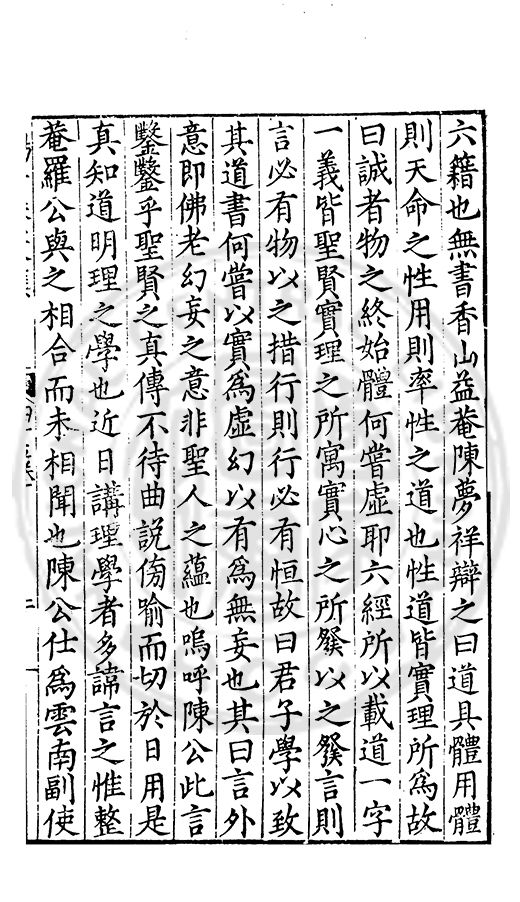 六籍也無書香山益菴陳夢祥辯之曰道具體用體
則天命之性用則率性之道也性道皆實理所爲故
曰誠者物之終始體何嘗虛耶六經所以載道一字
一義皆聖賢實理之所寓實心之所發以之發言則
言必有物以之措行則行必有恒故曰君子學以致
其道書何嘗以實爲虛幻以有爲無妄也其曰言外
意即佛老幻妄之意非聖人之蘊也嗚呼陳公此言
鑿鑿乎聖賢之真傳不待曲說傍喻而切於日用是
真知道明理之學也近日講理學者多諱言之惟整
菴羅公與之相合而未相聞也陳公仕爲雲南副使